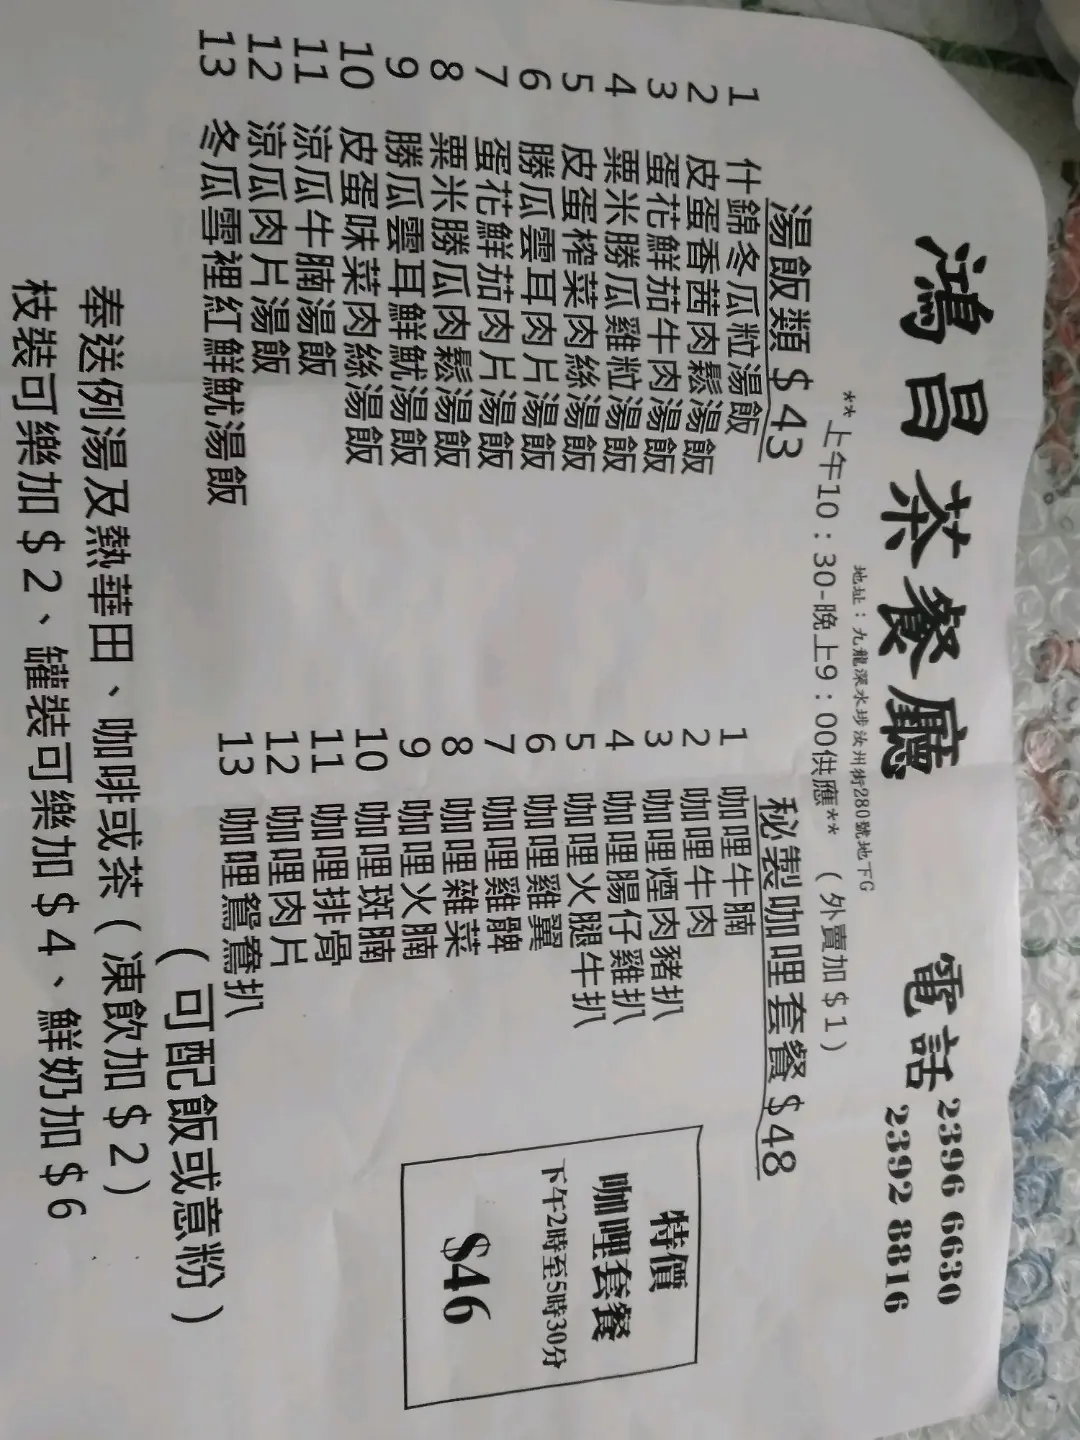 鴻昌茶餐廳 電話 2396 6630
2392 8816
地址：九龍深水埗汝州街280號地下G
**上午10：30-晚上9：00供應** （外賣加$1）
湯飯類$43
1 什錦冬瓜粒湯飯
2 皮蛋香茜肉鬆湯飯
3 蛋花鮮茄牛肉湯飯
4 粟米勝瓜雞粒湯飯
5 皮蛋榨菜肉絲湯飯
6 勝瓜雲耳肉片湯飯
7 蛋花鮮茄肉片湯飯
8 粟米勝瓜肉鬆湯飯
9 勝瓜雲耳鮮魷湯飯
10 皮蛋味菜肉絲湯飯
11 涼瓜牛腩湯飯
12 涼瓜肉片湯飯
13 冬瓜雪裡紅鮮魷湯飯
秘製咖哩套餐$48
1 咖哩牛腩
2 咖哩牛肉
3 咖哩煙肉豬扒
4 咖哩腸仔雞扒
5 咖哩火腿牛扒
6 咖哩雞翼
7 咖哩雞髀
8 咖哩雜菜
9 咖哩火腩
10 咖哩斑腩
11 咖哩排骨
12 咖哩肉片
13 咖哩鴛鴦扒
特價
咖哩套餐
下午2時至5時30分
$46
（可配飯或意粉）
奉送例湯及熱華田、咖啡或茶（凍飲加$2）
枝裝可樂加$2、罐裝可樂加$4、鮮奶加$6